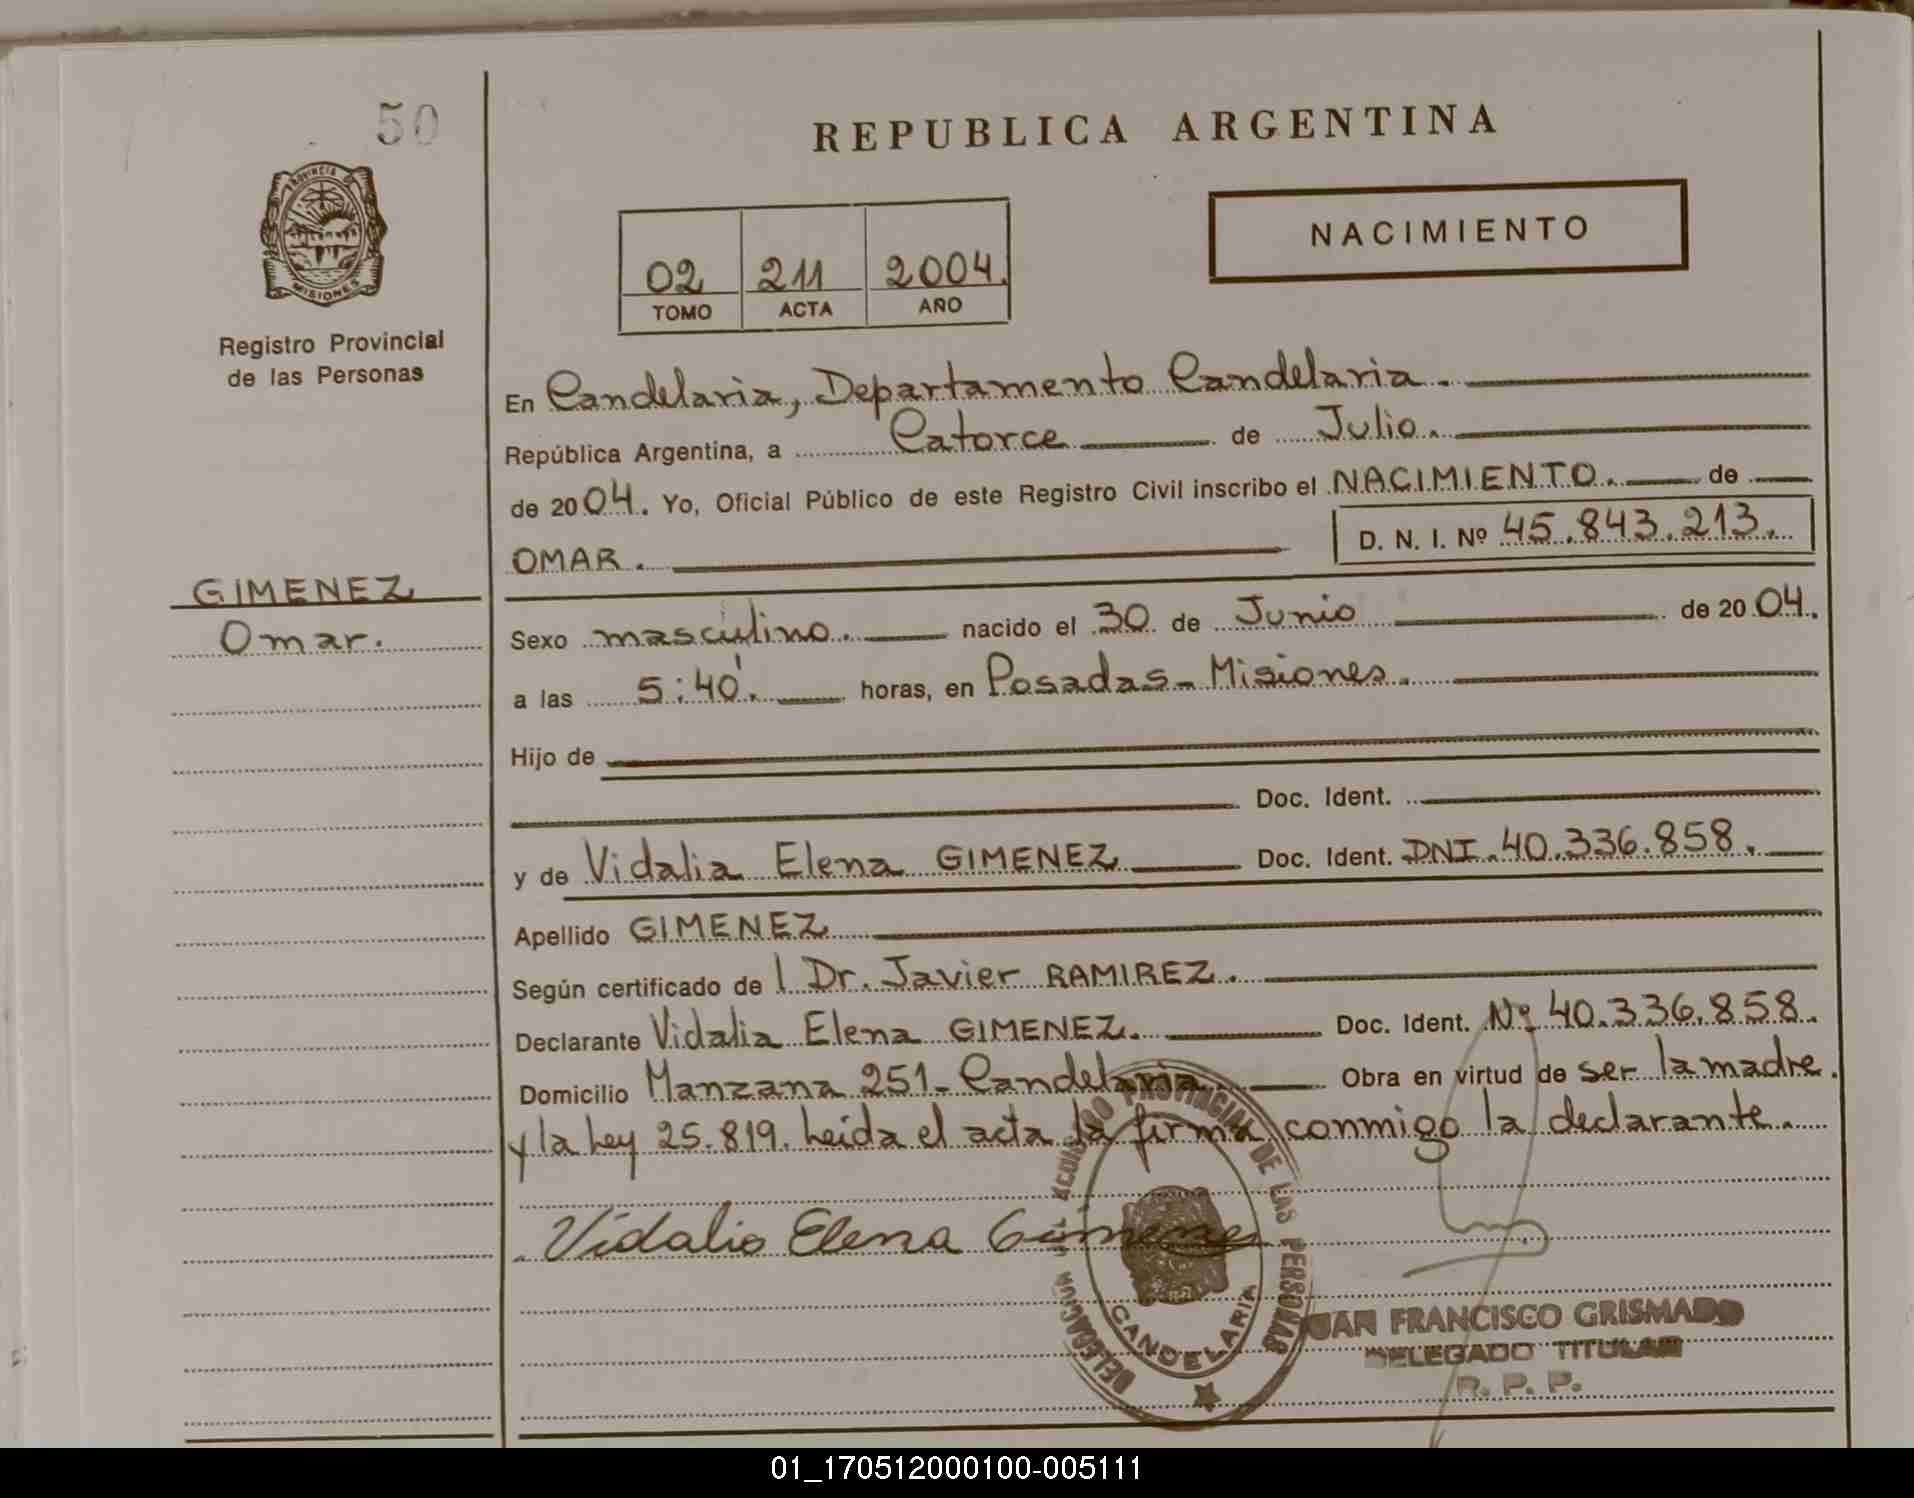 50
REPUBLICA ARGENTINA
PROVINCIA DE
MISIONES
Registro Provincial
de las Personas
02 211 2004.
TOMO ACTA AÑO
NACIMIENTO
En Candelaria, Departamento Candelaria.
República Argentina, a Catorce de Julio.
de 2004. Yo, Oficial Público de este Registro Civil inscribo el NACIMIENTO. de
OMAR. D. N. I. Nº 45.843.213.
GIMENEZ
Omar.
Sexo masculino. nacido el 30 de Junio de 2004.
a las 5:40'. horas, en Posadas - Misiones.
Hijo de
Doc. Ident.
y de Vidalia Elena GIMENEZ Doc. Ident. DNI. 40.336.858.
Apellido GIMENEZ
Según certificado de l Dr. Javier RAMIREZ.
Declarante Vidalia Elena GIMENEZ. Doc. Ident. Nº 40.336.858.
Domicilio Manzana 251 - Candelaria. Obra en virtud de ser la madre.
y la Ley 25.819. Leida el acta la firma conmigo la declarante.
Vidalia Elena Gimenez
DELEGACION REGISTRO PROVINCIAL DE LAS PERSONAS
CANDELARIA
JUAN FRANCISCO GRISMADO
DELEGADO TITULAR
R. P. P.
01_170512000100-005111